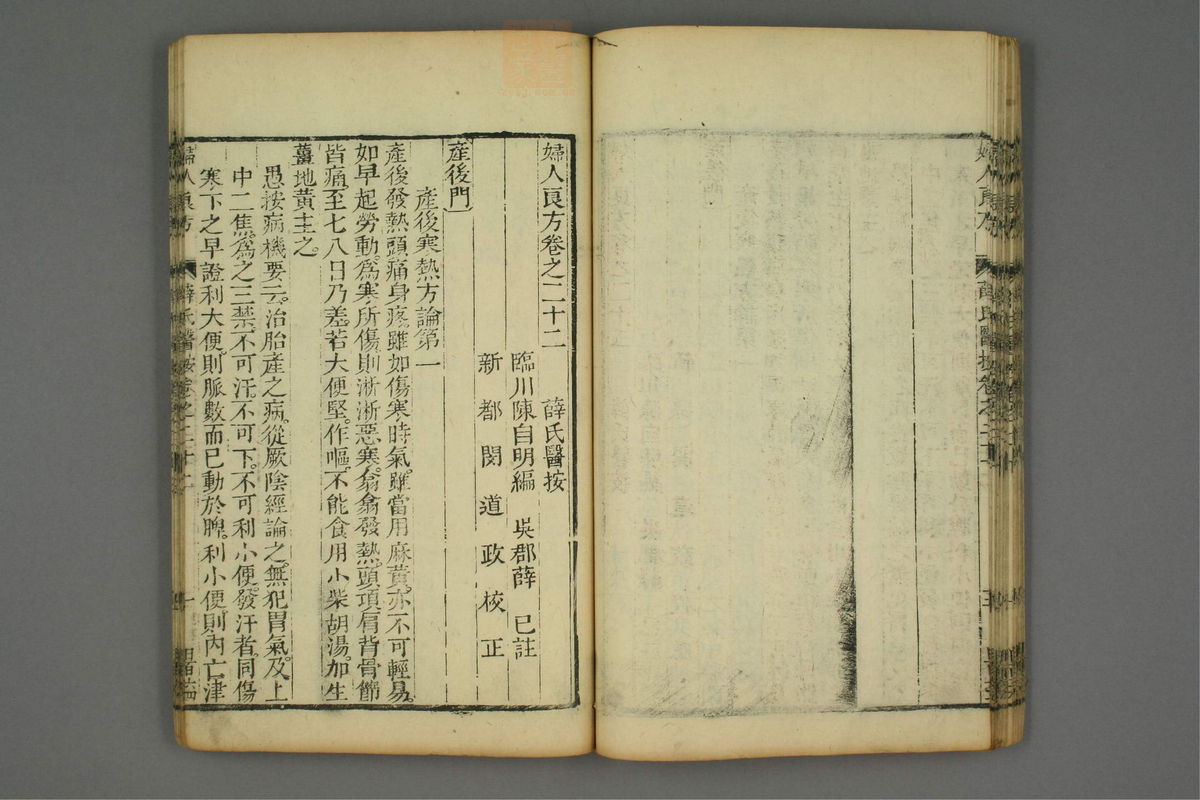 婦人良方
薛氏醫按卷之二十一
婦人良方卷之二十二 薛氏醫按
臨川陳自明編 吳郡薛 已註
新都閔道政校正
產後門
產後寒熱方論第一
產後發熱頭痛身疼雖如傷寒時氣雖當用麻黃亦不可輕易
如早起勞動為寒所傷則淅淅惡寒翕翕發熱頭項肩背骨節
皆痛至七八日乃差若大便堅作嘔不能食用小柴胡湯加生
薑地黃主之
愚按病機要云治胎產之病從厥陰經論之無犯胃氣及上
中二焦為之三禁不可汗不可下不可利小便發汗者同傷
寒下之早證利大便則脈數而已動於脾利小便則內亡津
婦人良方
薛氏醫按卷之二十二
一